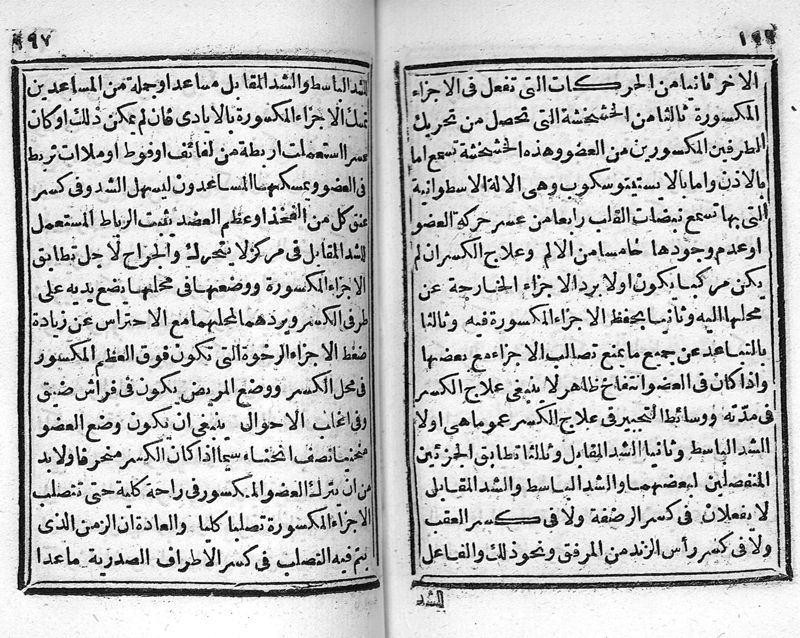 ١٩٦
الاخر ثانيا من الحركات التى تفعل فى الاجزاء
المكسورة ثالثا من الخشخشة التى تحصل من تحريك
الطرفين المكسورين من العضو وهذه الخشخشة تسمع اما
بالاذن واما بالايستيتوسكوب وهى الالة الاسطوانية
التى بها تسمع نبضات القلب رابعا من عسر حركة العضو
او عدم وجودها خامسا من الالم وعلاج الكسر ان لم
يكن مركبا يكون اولا برد الاجزاء الخارجة عن
محلها اليه وثانيا بحفظ الاجزاء المكسورة فيه وثالثا
بالتباعد عن جميع ما يمنع تصالب الاجزاء مع بعضها
واذا كان فى العضو انتفاخ ظاهر لا ينبغى علاج الكسر
فى مدته ووسائط التجبير فى علاج الكسر عموما هى اولا
الشد الباسط وثانيا الشد المقابل وثالثا تطابق الجزئين
المنفصلين لبعضهما والشد الباسط والشد المقابل
لا يفعلان فى كسر الرضفة ولا فى كسر العقب
ولا فى كسر رأس الزند من المرفق ونحو ذلك والفاعل
الشد
١٩٧
للشد الباسط والشد المقابل مساعد او جملة من المساعدين
تمسك الاجزاء المكسورة بالايادى فان لم يمكن ذلك او كان
عسرا استعملت اربطة من لفائف او فوط او ملاآت تربط
فى العضو ويمسكها المساعدون ليسهل الشد وفى كسر
عنق كل من الفخذ او عظم العضد يثبت الرباط المستعمل
للشد المقابل فى مركز لا يتحرك والجراح لاجل تطابق
الاجزاء المكسورة ووضعها فى محلها يضع يديه على
طرفى الكسر ويردهما لمحلهما مع الاحتراس عن زيادة
ضغط الاجزاء الرخوة التى تكون فوق العظم المكسور
فى محل الكسر ووضع المريض يكون فى فراش ضيق
وفى اغلب الاحوال ينبغى ان يكون وضع العضو
منحنيا نصف انحناء سيما اذا كان الكسر منحرفا ولا بد
من ان يترك العضو المكسور فى راحة كلية حتى تتصلب
الاجزاء المكسورة تصلبا كليا والعادة ان الزمن الذى
يتم فيه التصلب فى كسر الاطراف الصدرية ماعدا